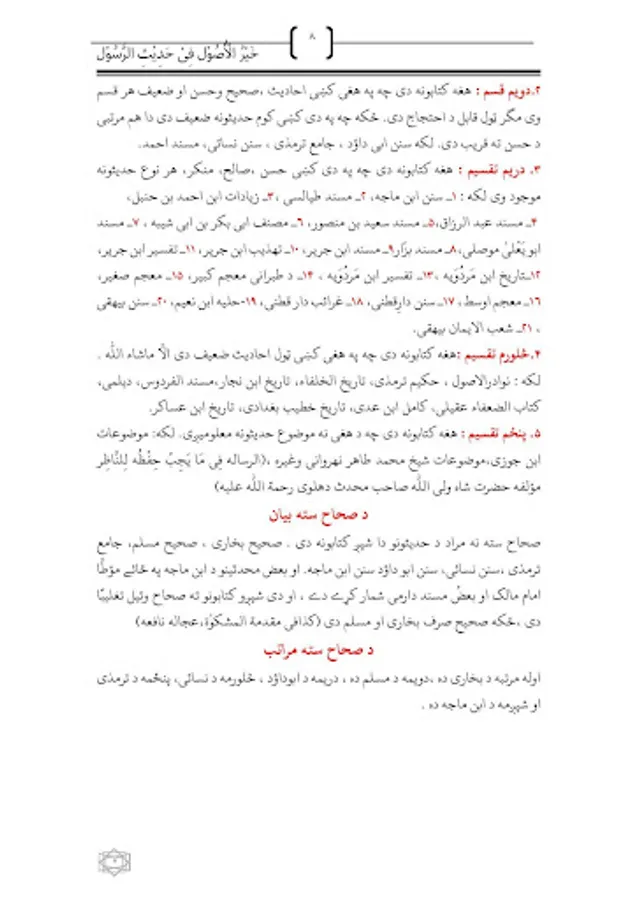 ۸
خَیْرُ الْأُصُوْل فِیْ حَدِیْثِ الرَّسُوْل
۲.دویم قسم : هغه کتابونه دی چه په هغی کښی احادیث ،صحیح وحسن او ضعیف هر قسم
وی مگر ټول قابل د احتجاج دی. ځکه چه په دی کښی کوم حدیثونه ضعیف دی دا هم مرتبی
د حسن ته قریب دی. لکه سنن ابی داؤد ، جامع ترمذی ، سنن نسائی، مسند احمد.
۳. دریم تقسیم : هغه کتابونه دی چه په دی کښی حسن ،صالح، منکر، هر نوع حدیثونه
موجود وی لکه : ۱ـ سنن ابن ماجه، ۲ـ مسند طیالسی ،۳ـ زیادات ابن احمد بن حنبل،
۴ـ مسند عبد الرزاق،۵ـ مسند سعید بن منصور، ۶ـ مصنف ابی بکر بن ابی شیبه ، ۷ـ مسند
ابو یَعْلیٰ موصلی،۸ـ مسند بزار۹ـ مسند ابن جریر، ۱۰ـ تهذیب ابن جریر، ۱۱ـ تفسیر ابن جریر،
۱۲ـتاریخ ابن مَرْدُوَیه ،۱۳ـ تفسیر ابن مَرْدُوَیه ، ۱۴ـ د طبرانی معجم کبیر، ۱۵ـ معجم صغیر،
۱۶ـ معجم اوسط، ۱۷ـ سنن دارقطنی، ۱۸ـ غرائب دار قطنی، ۱۹-حلیه ابن نعیم، ۲۰ـ سنن بیهقی
، ۲۱ـ شعب الایمان بیهقی.
۴.څلورم تقسیم :هغه کتابونه دی چه په هغی کښی ټول احادیث ضعیف دی الّا ماشاء الله .
لکه : نوادرالاصول ، حکیم ترمذی، تاریخ الخلفاء، تاریخ ابن نجار،مسند الفردوس، دیلمی،
کتاب الضعفاء عقیلی، کامل ابن عدی، تاریخ خطیب بغدادی، تاریخ ابن عساکر.
۵. پنځم تقسیم : هغه کتابونه دی چه د هغی نه موضوع حدیثونه معلومیږی. لکه: موضوعات
ابن جوزی،موضوعات شیخ محمد طاهر نهروانی وغیره ،(الرساله فِی مَا یَجِبُ حِفْظُه لِلنَّاظِر
مؤلفه حضرت شاه ولی الله صاحب محدث دهلوی رحمة الله علیه)
د صحاح سته بیان
صحاح سته نه مراد د حدیثونو دا شپږ کتابونه دی . صحیح بخاری ، صحیح مسلم، جامع
ترمذی ،سنن نسائی، سنن ابو داؤد سنن ابن ماجه. او بعض محدثینو د ابن ماجه په ځائے مؤطّا
امام مالک او بعضُ مسند دارمی شمار کړے دے ، او دی شپږو کتابونو ته صحاح وئیل تغلیبًا
دی ،ځکه صحیح صرف بخاری او مسلم دی (کذافی مقدمة المشکوٰة،عجاله نافعه)
د صحاح سته مراتب
اوله مرتبه د بخاری ده ،دویمه د مسلم ده ، دریمه د ابوداؤد ، څلورمه د نسائی، پنځمه د ترمذی
او شپږمه د ابن ماجه ده .